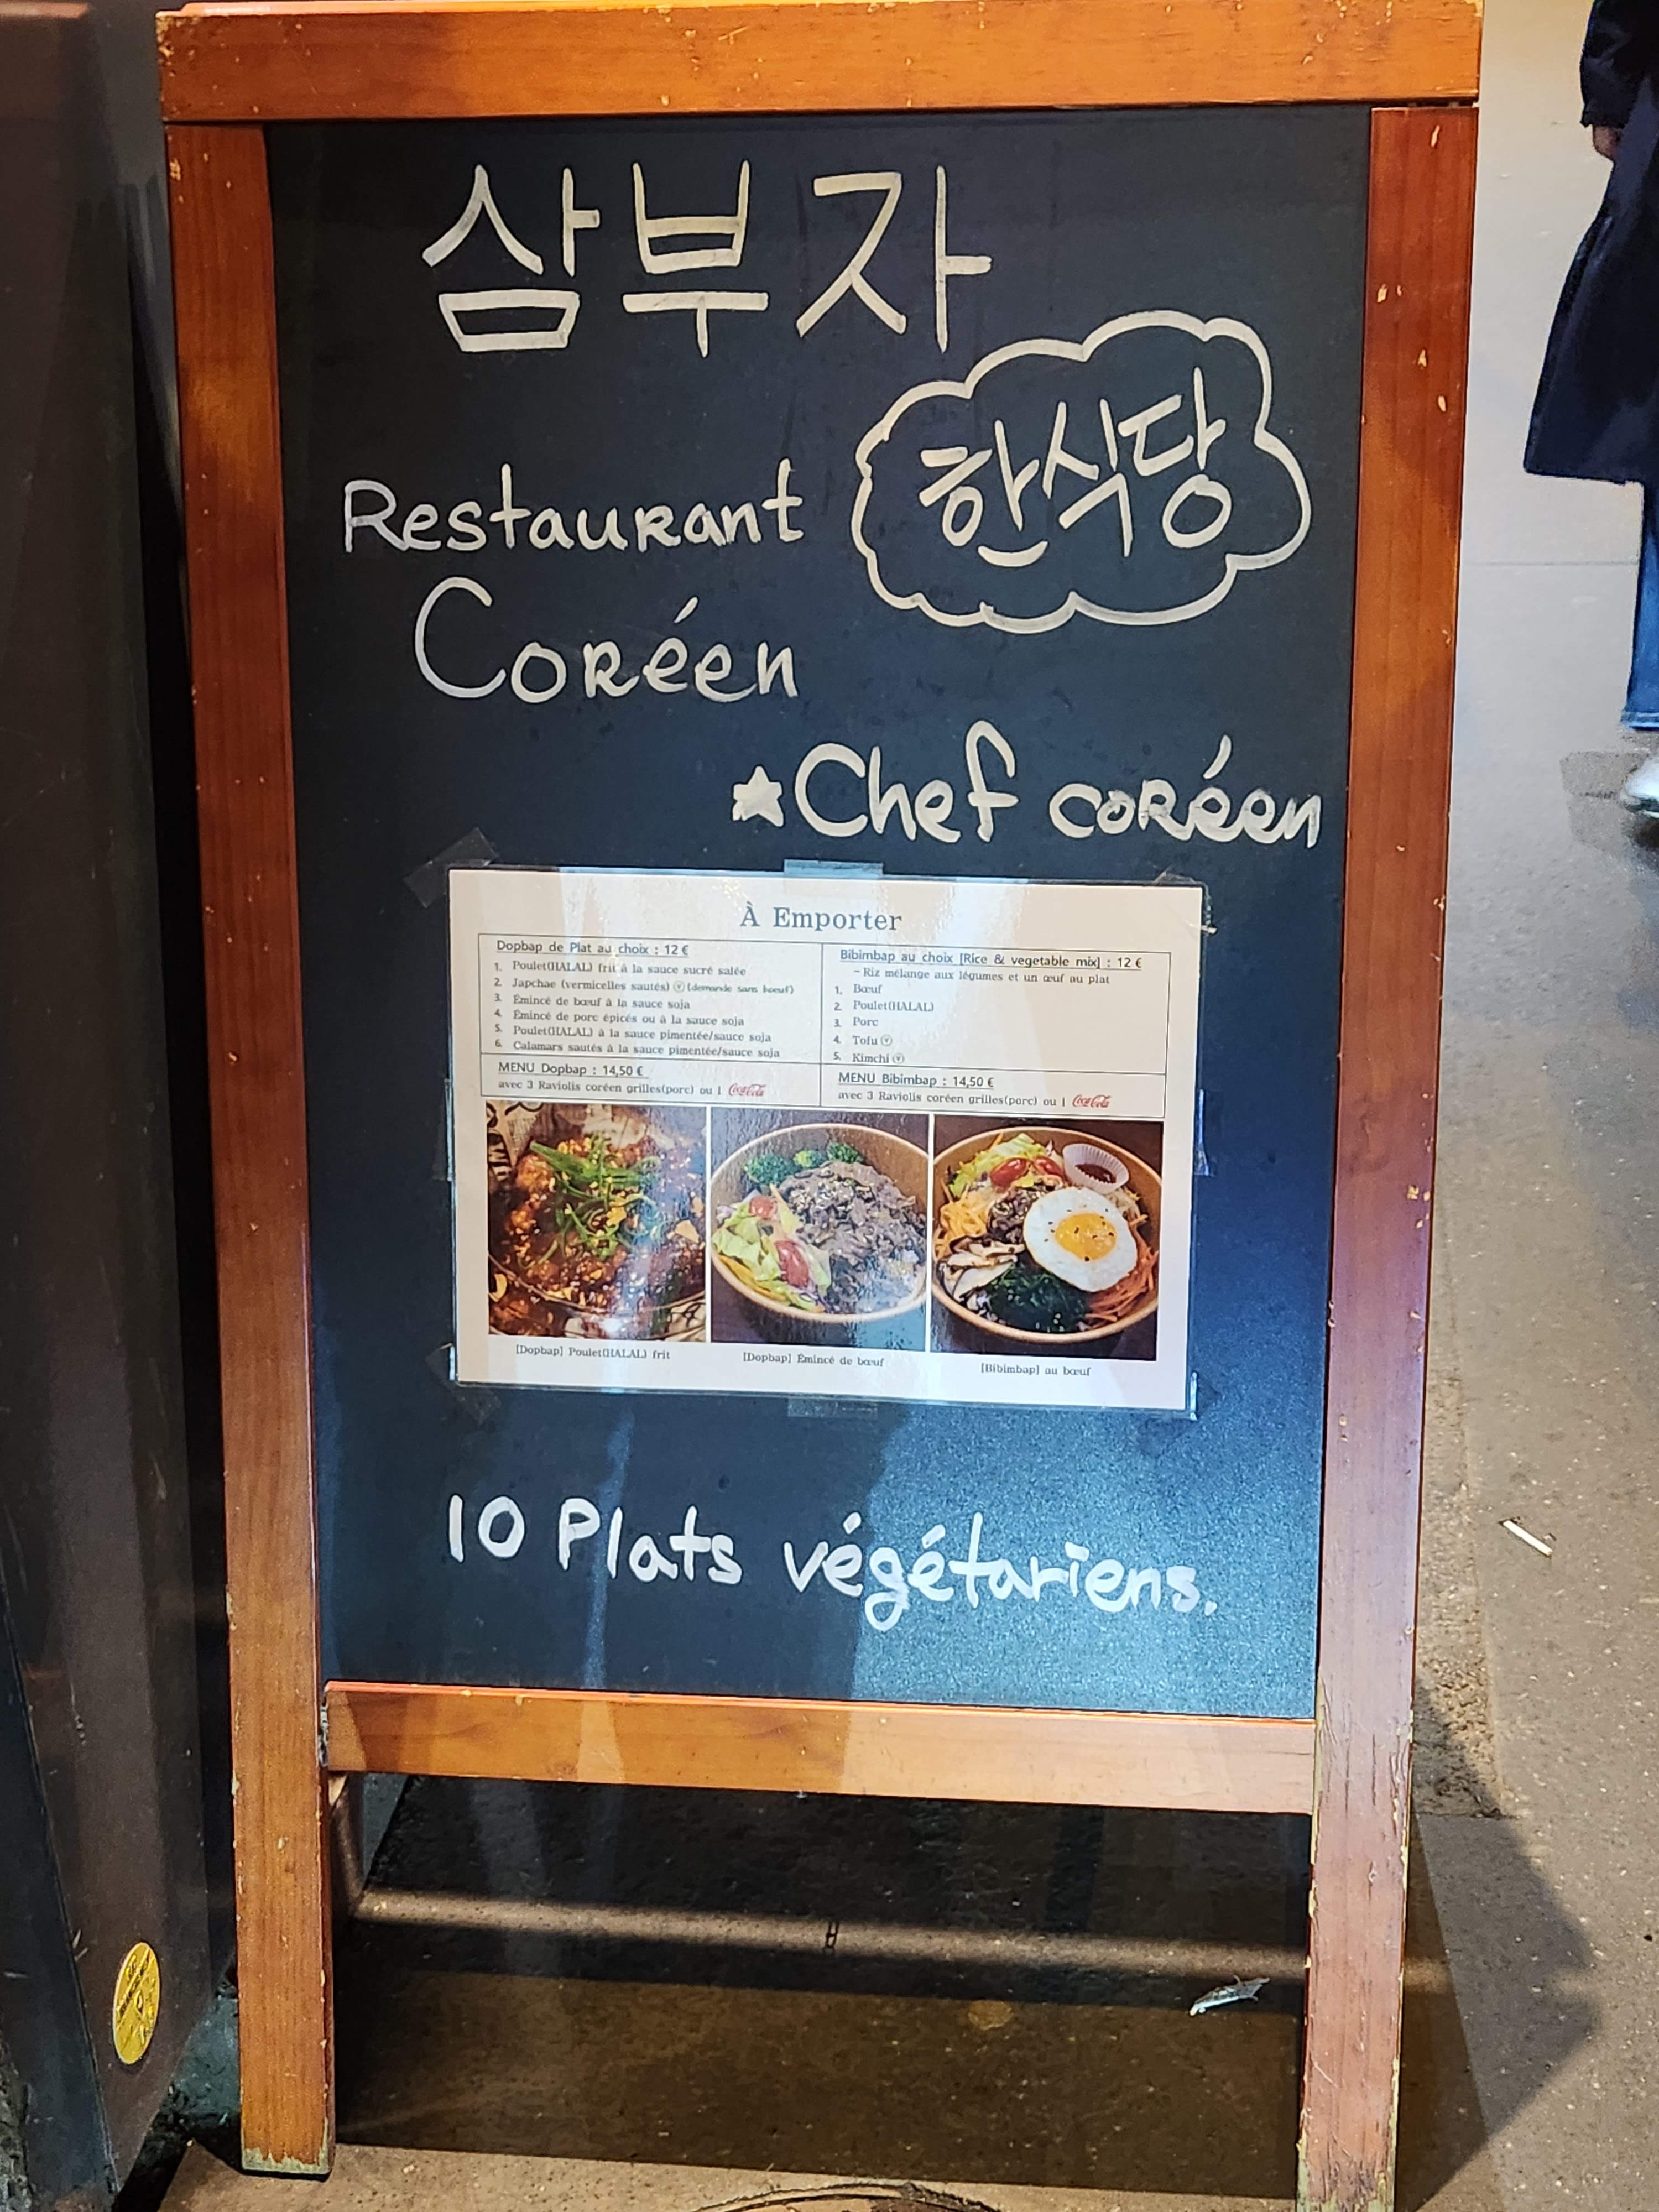 삼부자
한식당
Restaurant
Coréen
★Chef coréen
À Emporter
Dopbap de Plat au choix : 12 €
1. Poulet(HALAL) frit à la sauce sucré salée
2. Japchae (vermicelles sautés) Ⓥ (demande sans boeuf)
3. Émincé de bœuf à la sauce soja
4. Émincé de porc épicés ou à la sauce soja
5. Poulet(HALAL) à la sauce pimentée/sauce soja
6. Calamars sautés à la sauce pimentée/sauce soja
MENU Dopbap : 14,50 €
avec 3 Raviolis coréen grilles(porc) ou 1 Coca-Cola
Bibimbap au choix [Rice & vegetable mix] : 12 €
- Riz mélange aux légumes et un œuf au plat
1. Bœuf
2. Poulet(HALAL)
3. Porc
4. Tofu Ⓥ
5. Kimchi Ⓥ
MENU Bibimbap : 14,50 €
avec 3 Raviolis coréen grilles(porc) ou 1 Coca-Cola
[Dopbap] Poulet(HALAL) frit
[Dopbap] Émincé de bœuf
[Bibimbap] au bœuf
10 Plats végétariens.